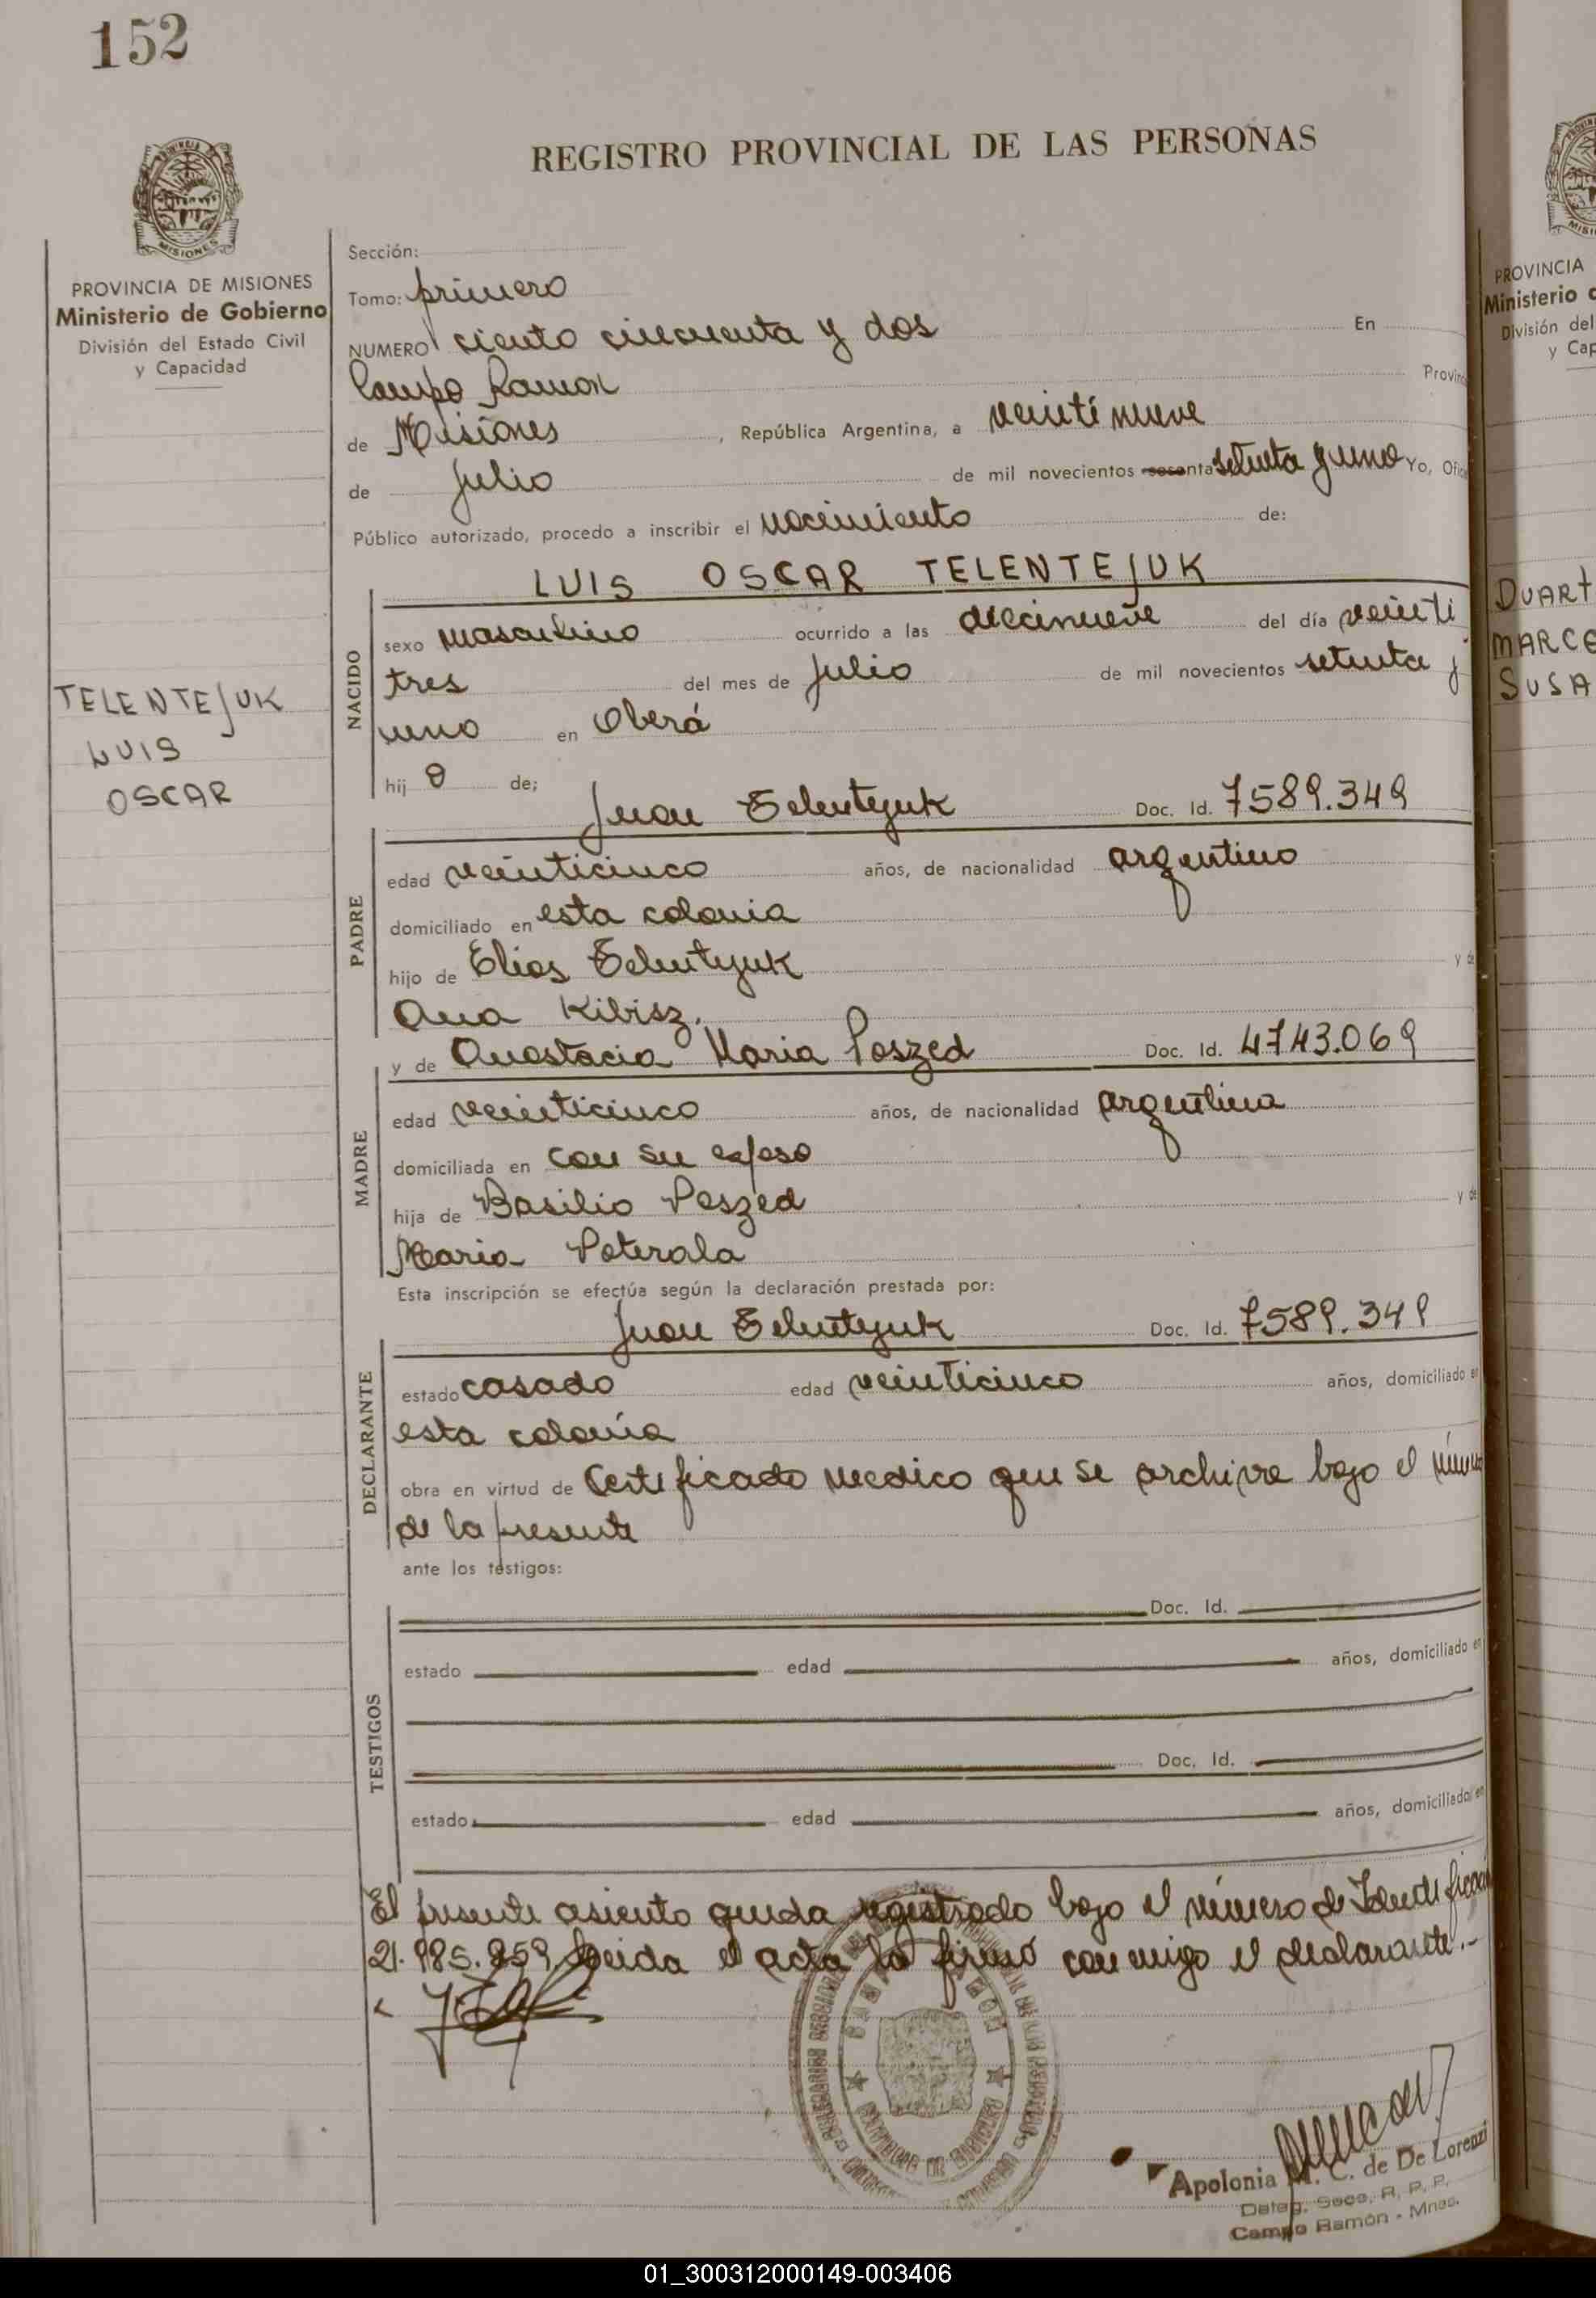 152
REGISTRO PROVINCIAL DE LAS PERSONAS
MISIONES
PROVINCIA DE MISIONES
Ministerio de Gobierno
División del Estado Civil
y Capacidad
TELENTEJUK
LUIS
OSCAR
Sección:
Tomo: primero
NUMERO ciento cincuenta y dos En
Campo Ramon Provin
de Misiones, República Argentina, a veinti nueve
de Julio de mil novecientos sesenta setenta y uno Yo, Ofic
Público autorizado, procedo a inscribir el nacimiento de:
LUIS OSCAR TELENTEJUK
NACIDO
sexo masculino ocurrido a las diecinueve del día veinti
tres del mes de Julio de mil novecientos setenta y
uno en Oberá
hij o de;
Juan Telentejuk Doc. Id. 7589.349
PADRE
edad veinticinco años, de nacionalidad argentino
domiciliado en esta colonia
hijo de Elias Telentejuk y de
Ana Kibisz.
y de Anastacia Maria Poszed Doc. Id. 4743.069
MADRE
edad veinticinco años, de nacionalidad argentina
domiciliada en con su esposo
hija de Basilio Poszed y de
Maria Poterala
Esta inscripción se efectúa según la declaración prestada por:
Juan Telentejuk Doc. Id. 7589.349
DECLARANTE
estado casado edad veinticinco años, domiciliado en
esta colonia
obra en virtud de Certificado medico que se archiva bajo el número
de la presente
ante los testigos:
TESTIGOS
Doc. Id.
estado edad años, domiciliado en
Doc. Id.
estado edad años, domiciliado en
El presente asiento queda registrado bajo el número de Identificación
21.985.859 Leida el acta la firmó conmigo el declarante.-
Apolonia M. C. de De Lorenzi
Deleg. Secc. R. P. P.
Campo Ramón - Mnes.
PROVINCIA
Ministerio d
División del
y Cap
DUART
MARCE
SUSA
01_300312000149-003406